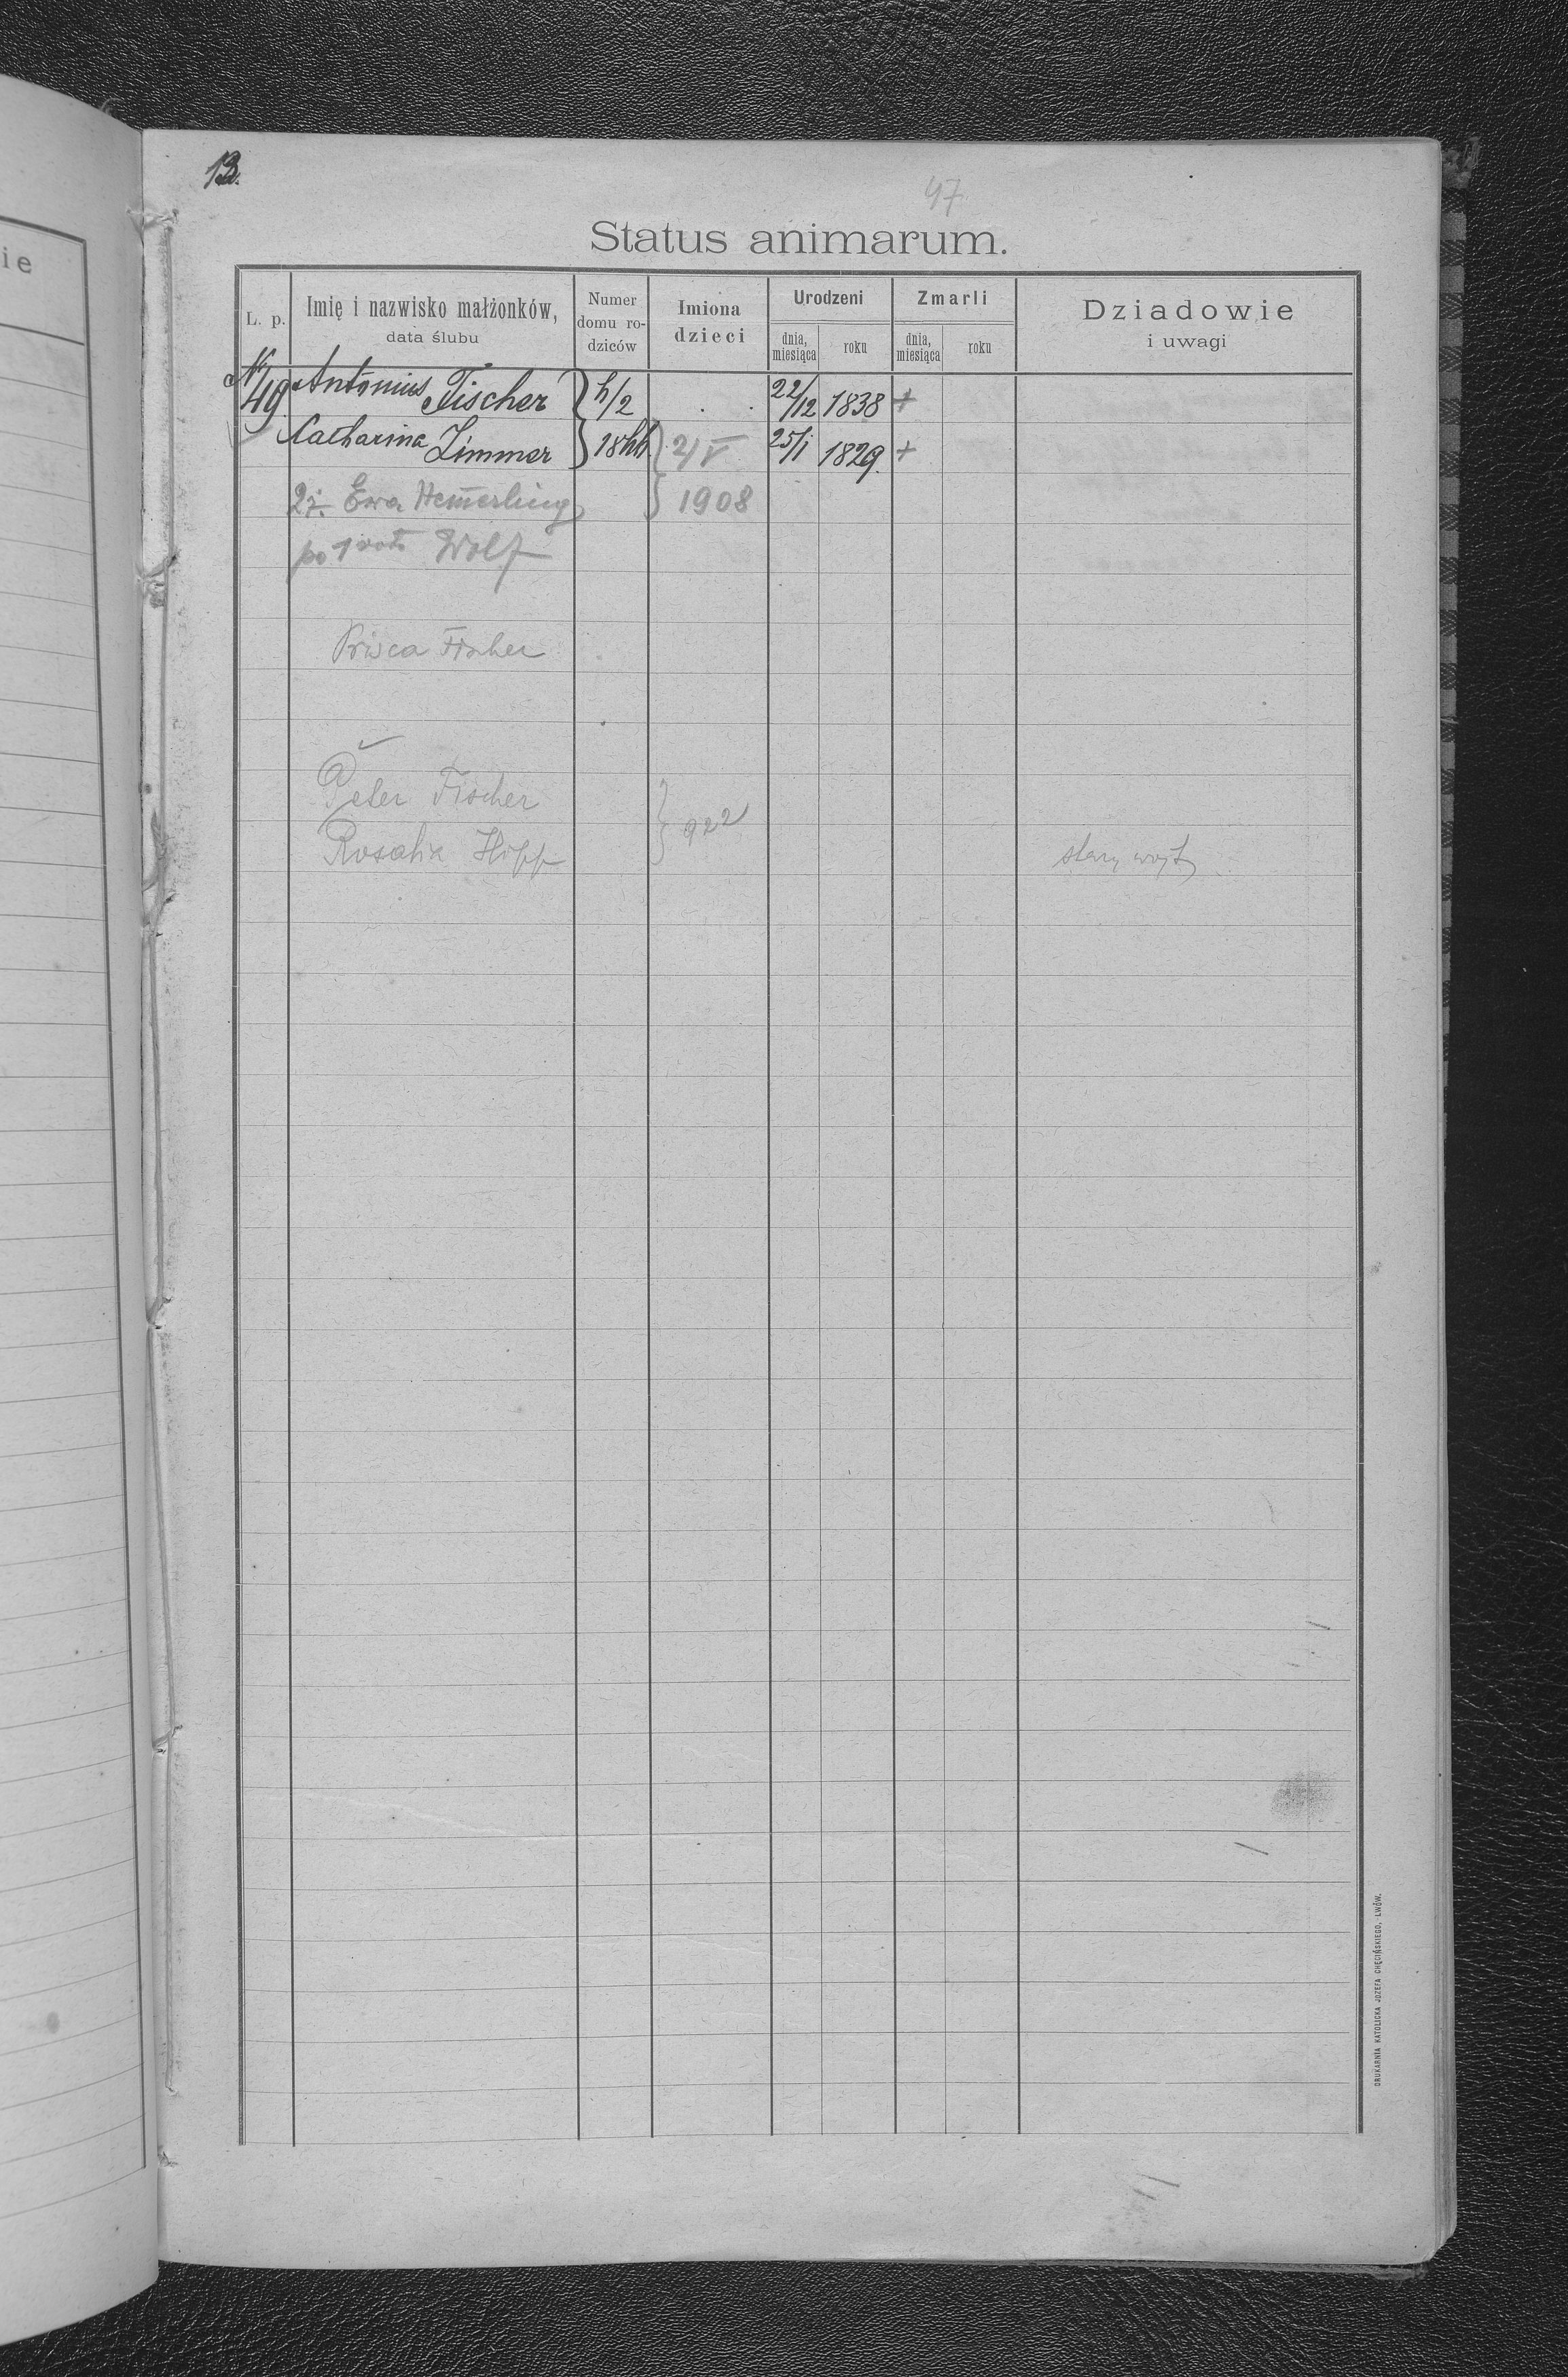 13.
47
Status animarum.
ie
L. p.
Imię i nazwisko małżonków,
data ślubu
Numer
domu ro-
dziców
Imiona
dzieci
Urodzeni
dnia,
miesiąca
roku
Zmarli
dnia,
miesiąca
roku
Dziadowie
i uwagi
N/49 Antonius Fischer } h/2 . . 22/12 1838 +
Catharina Zimmer } 18hh } 2/V 25/1 1829 +
2ż. Ewa Hem̄erling } 1908
po 1 voto Wolf
Prisca Fischer
Peter Fischer
Rosalia Hipp } 922 stary wójt
DRUKARNIA KATOLICKA JÓZEFA CHĘCIŃSKIEGO, LWÓW.